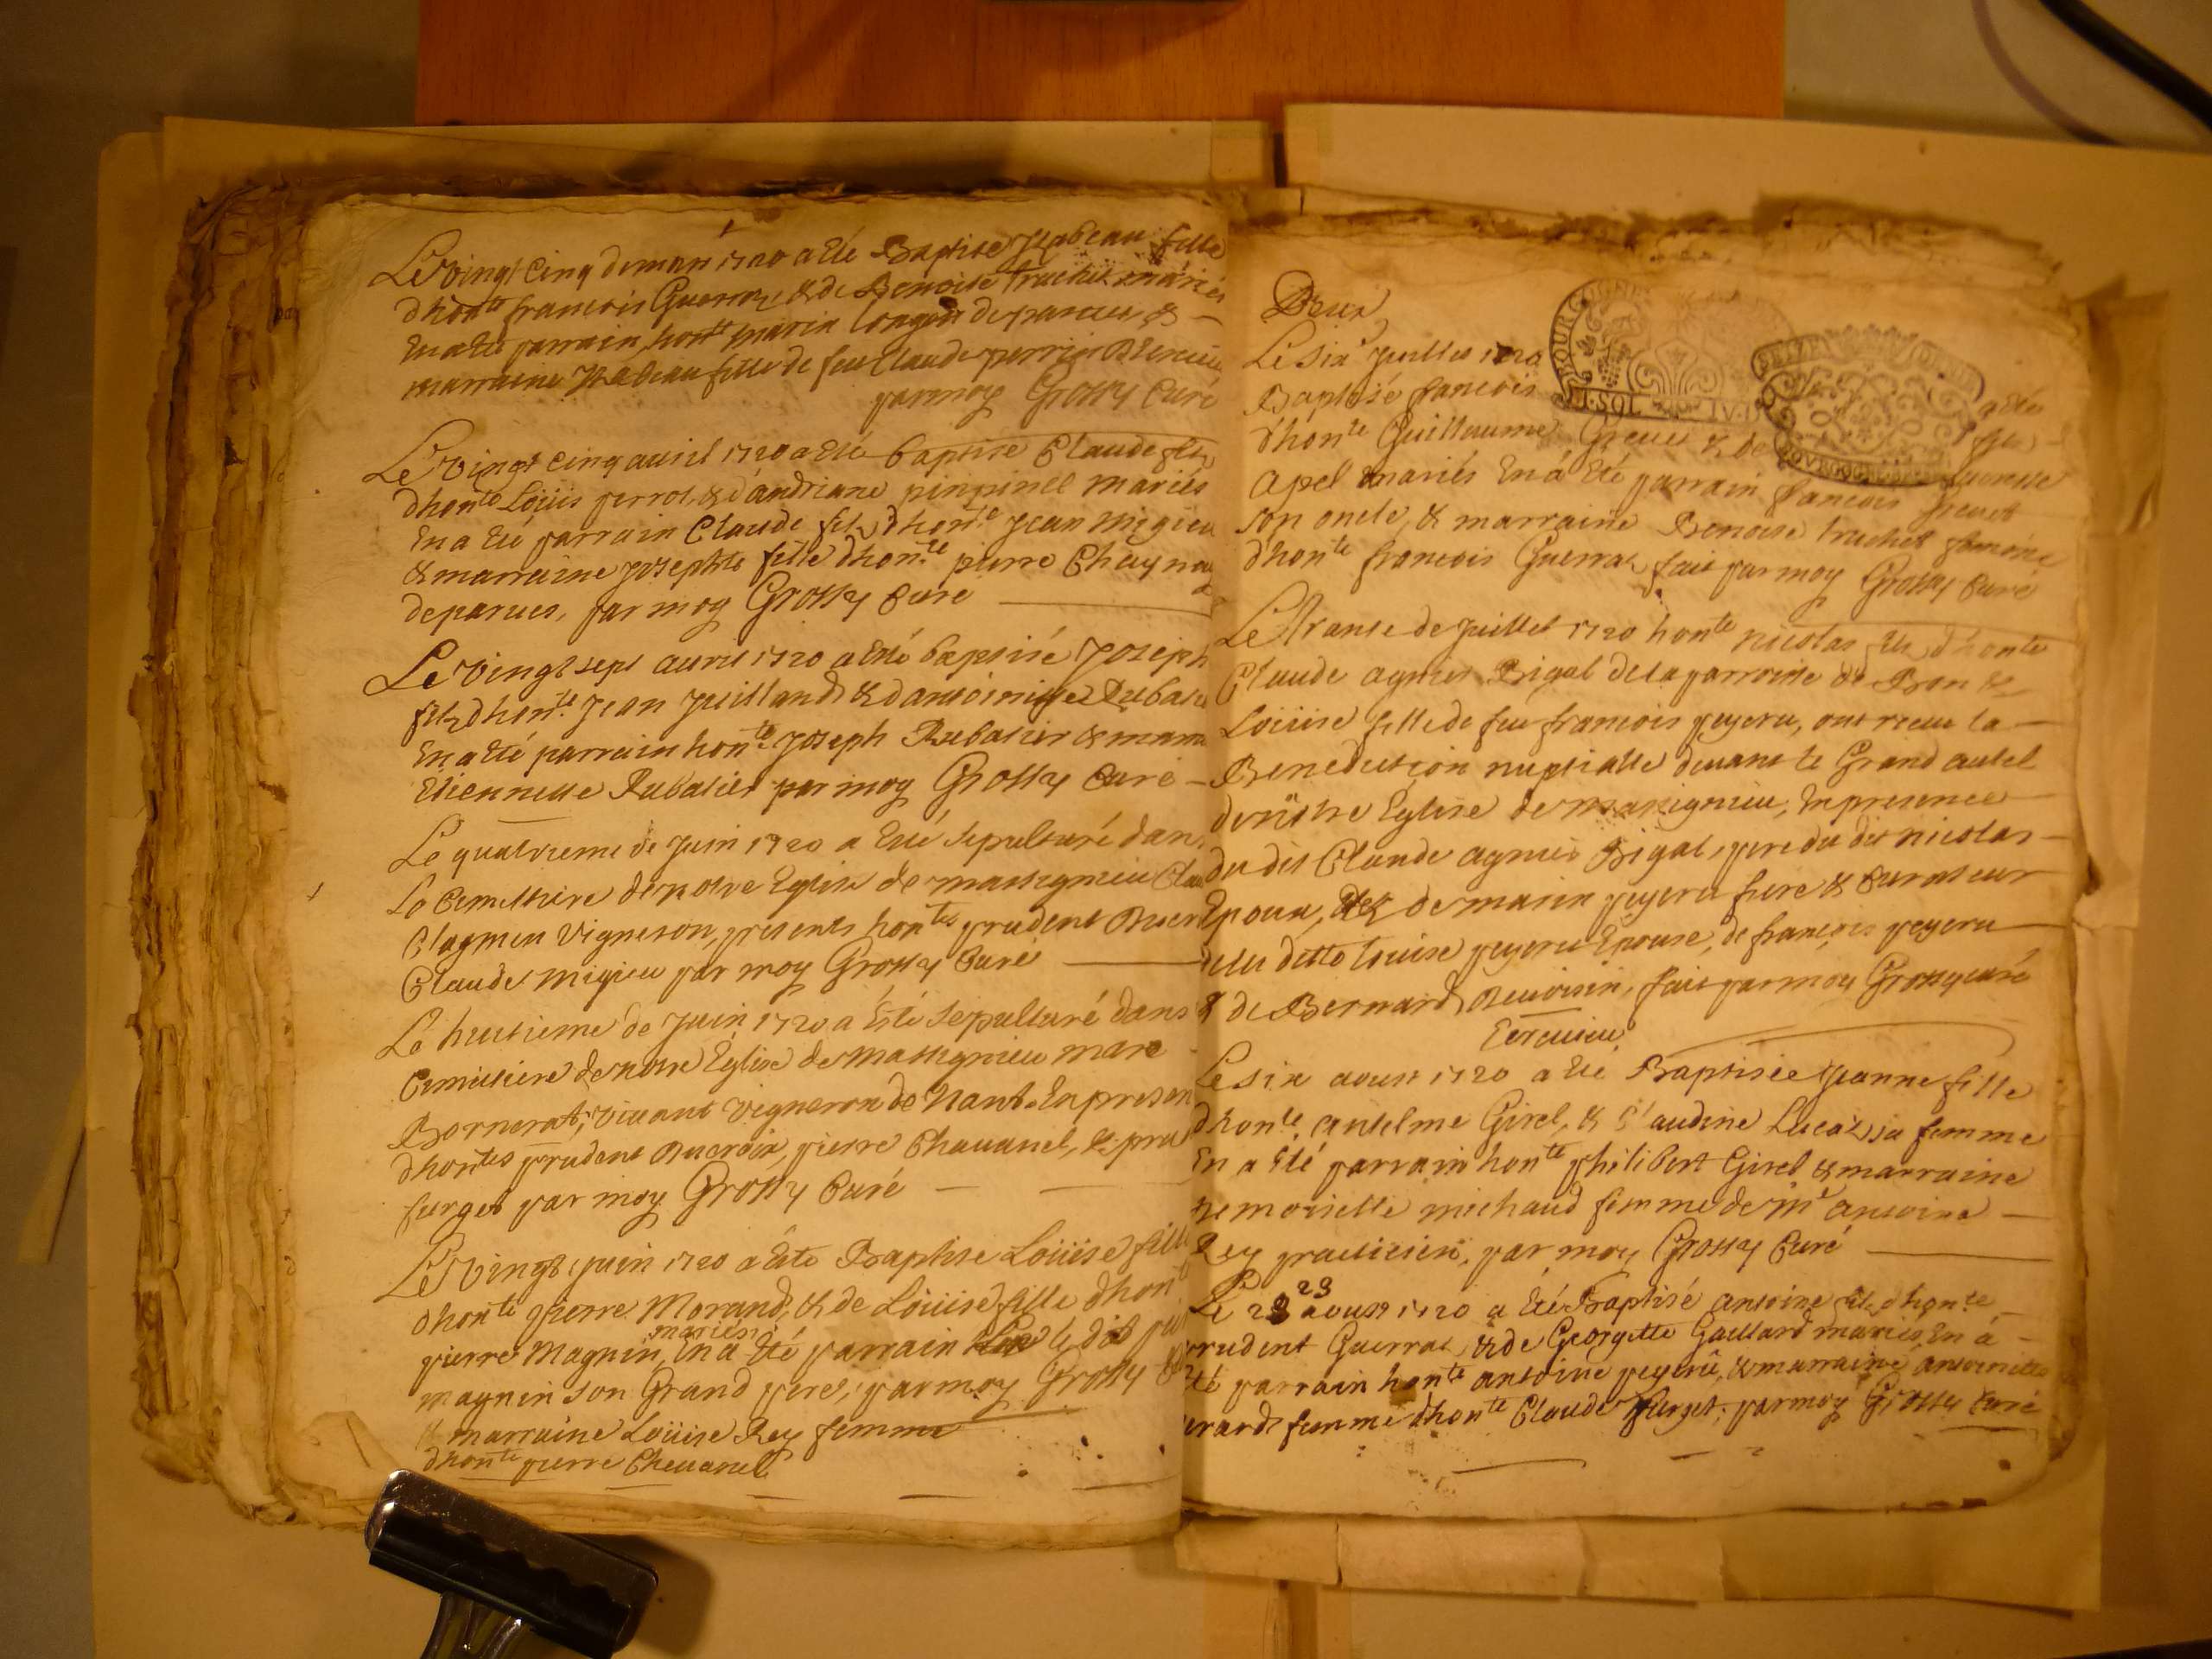 Le vingt cinq de mars 1720 a Eté Baptise Isabeau fille
d'hon.te francois Guerraz & de Benoite truchet mariés
En a Eté parrain hon.te marin Longen de parues & —
marraine Isabeau fille de feu Claude perrin
par moy Grossy Curé
Le vingt cinq auril 1720 a Eté baptise Claude filz
d'hon.te Loüis perrot & d'andriane pinpinel mariés
En a Eté parrain Claude filz d'hon.te Jean migieu
& marraine Josephte fille d'hon.te pierre Chaynau
de parues, par moy Grossy Curé
Le vingt sept auril 1720 a Eté baptisé Joseph
filz d'hon.te Jean Juilland & d'antoinette Rubatie
En a Eté parrain hon.te Joseph Rubatier & marra
Etiennette Rubatier par moy Grossy Curé —
Le quatrieme de Juin 1720 a Eté sepulturé dans
Le Cemittiere de notre Eglise de massignieu Clau
Clagmen Vigneron, presents hon.tes prudent
Claude migieu par moy Grossy Curé
Le huitieme de Juin 1720 a Eté sepulturé dans
Cemittiere de notre Eglise de Massignieu marc
Bornerat, viuant vigneron de Nant. En presen
d'hon.tes prudent Ducroix, pierre Chauanel, & pru
furget par moy Grossy Curé —
Le Vingt Juin 1720 a Eté Baptise Loüise fille
d'hon.te pierre Morand, & de Loüise fille d'hon.te
mariés
pierre Magnin, En a Eté parrain le dit pie
magnin son Grand pere, par moy Grossy
& marraine Loüise Rey femme
d'hon.te pierre Cheuanel
Deux
BOURGOGNE
SEIZE DENIE
Le six Juillet 1720 a Eté
Baptisé francois filz
I·SOL IV·D
BOURGOGNE
d'hon.te Guillaume Greuet & de
apel mariés En a Eté parrain francois Greuet
son oncle, & marraine Benoite truchet femme
d'hon.te francois Guerraz fait par moy Grossy Curé
Le trante de Juillet 1720 hon.te nicolas filz d'hon.te
Claude agnies Rigal de la parroisse de Bon &
Loüise fille de feu francois peyeru, ont receu la —
Benediction nuptialle deuant le Grand autel
de nostre Eglise de massignieu, En presence
du dit Claude agnies Rigal, pere du dit nicolas —
Epoux, de marin peyeru frere & Curateur
de la ditte Louise peyeru Epouse, de francois peyeru
& de Bernard Deuoisin, fait par moy Grossy curé
Le six aoust 1720 a Eté Baptisée Jeanne fille
d'hon.te antelme Girel, & Claudine Lucaz sa femme
En a Eté parrain hon.te philibert Girel & marraine
Demoiselle michaud femme de m.e antoine —
Rey praticien, par moy Grossy Curé
23
Le aoust 1720 a Eté Baptisé antoine filz d'hon.te
prudent Guerraz & de Georgette Gaillard mariés, En a —
Eté parrain hon.te antoine peyeru, & marraine antoinette
erard femme d'hon.te Claude furget, par moy Grossy Curé